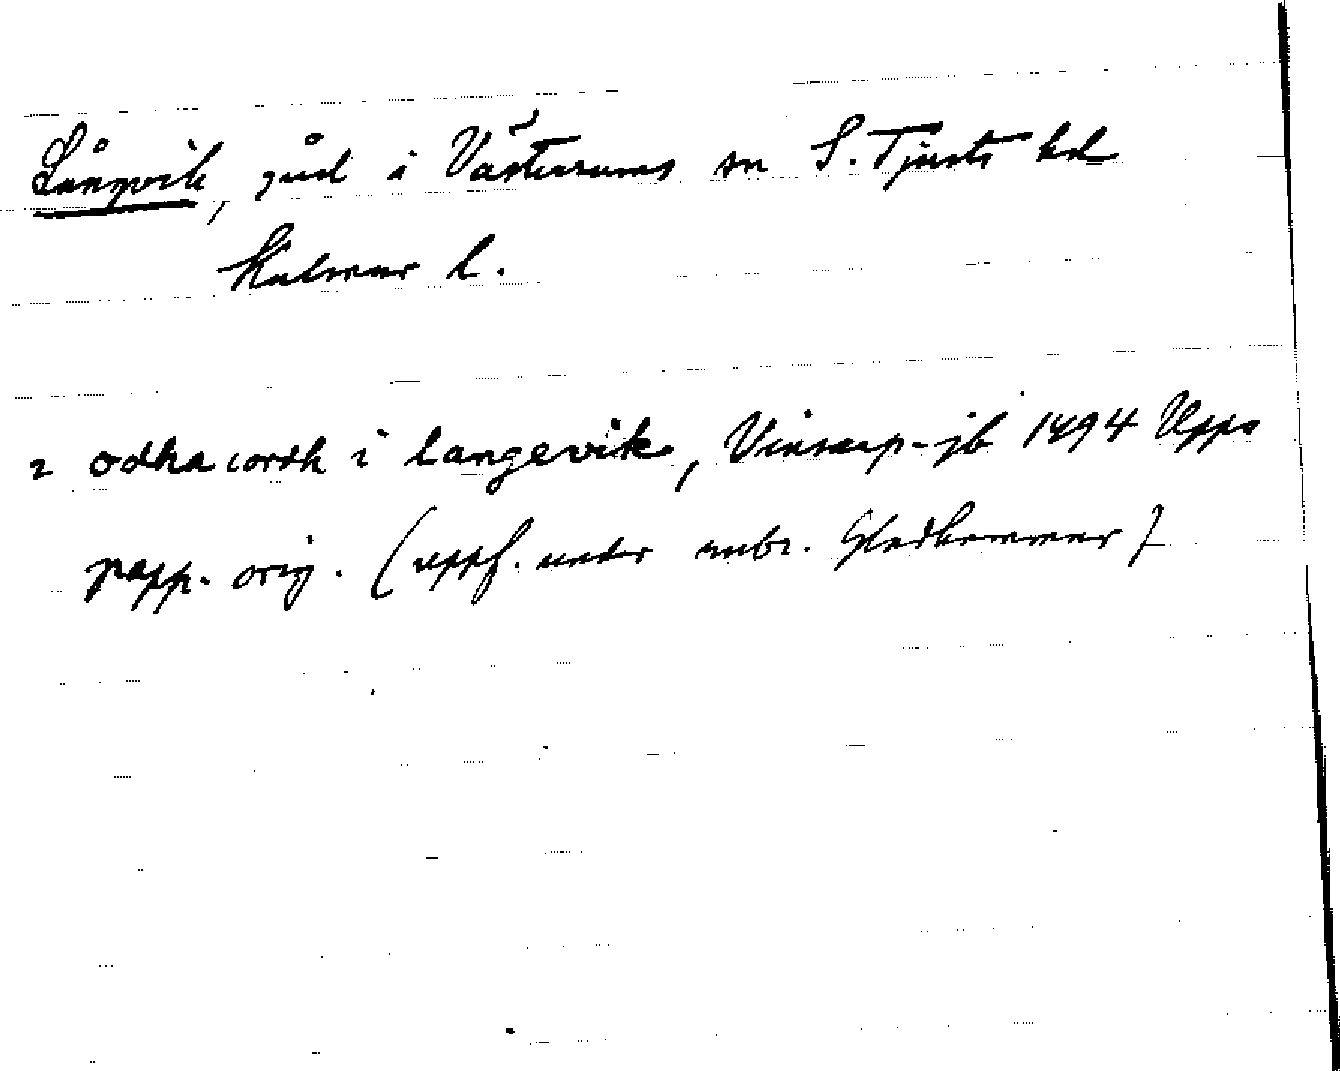 Långvik, gård i Västerums sn S. Tjusts hd
Kalmar l.
2 odha iordh i langevik, Vinsarp-jb 1494 Upps
papp. orig. (uppf. under rubr. Gladhammar)